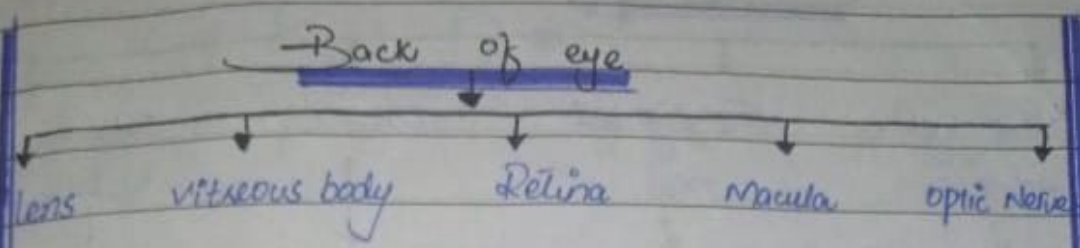 Back of eye
lens vitreous body Retina Macula optic Nerve